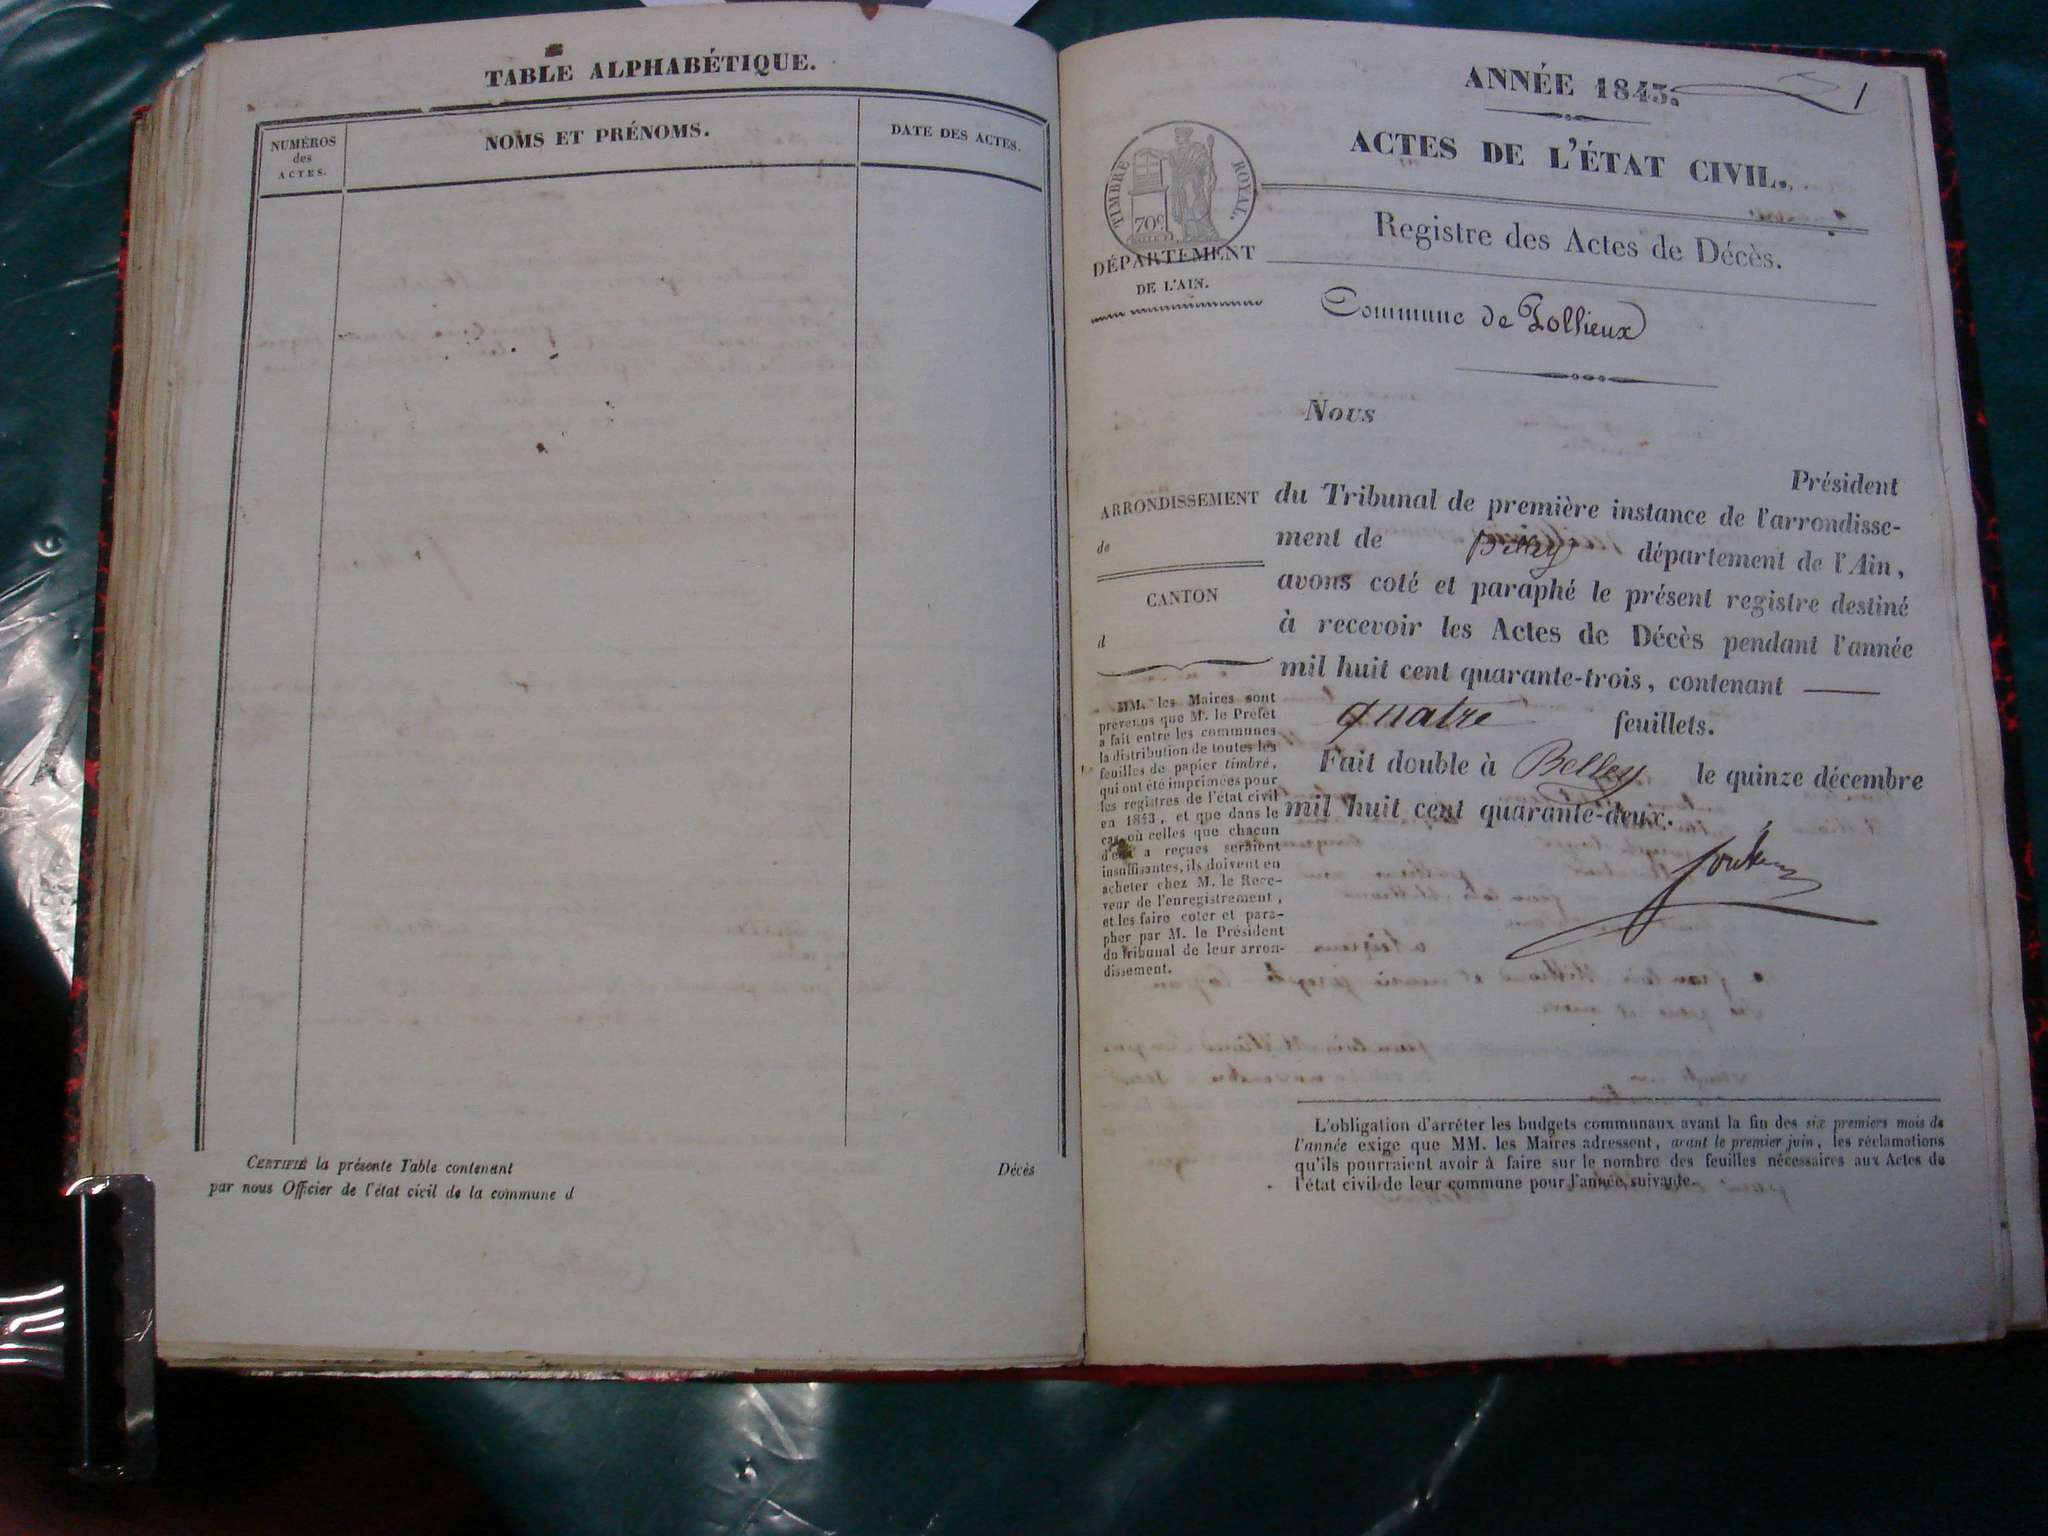 TABLE ALPHABÉTIQUE.
NUMÉROS
des
ACTES.
NOMS ET PRÉNOMS.
DATE DES ACTES.
CERTIFIÉ la présente Table contenant Décès
par nous Officier de l'état civil de la commune d
ANNÉE 1843. 1
ACTES DE L'ÉTAT CIVIL.
TIMBRE ROYAL.
70c
DÉPARTEMENT
DE L'AIN.
Registre des Actes de Décès.
Commune de Pollieux
Nous
Président
du Tribunal de première instance de l'arrondisse-
ment de Belley département de l'Ain,
avons coté et paraphé le présent registre destiné
à recevoir les Actes de Décès pendant l'année
mil huit cent quarante-trois, contenant
quatre feuillets.
Fait double à Belley le quinze décembre
mil huit cent quarante-deux.
ARRONDISSEMENT
de
CANTON
d
MM. les Maires sont
prévenus que M. le Préfet
a fait entre les communes
la distribution de toutes les
feuilles de papier timbré,
qui ont été imprimées pour
les registres de l'état civil
en 1843, et que dans le
cas où celles que chacun
d'eux a reçues seraient
insuffisantes, ils doivent en
acheter chez M. le Rece-
veur de l'enregistrement,
et les faire coter et para-
pher par M. le Président
du tribunal de leur arron-
dissement.
L'obligation d'arrêter les budgets communaux avant la fin des six premiers mois de
l'année exige que MM. les Maires adressent, avant le premier juin, les réclamations
qu'ils pourraient avoir à faire sur le nombre des feuilles nécessaires aux Actes de
l'état civil de leur commune pour l'année suivante.